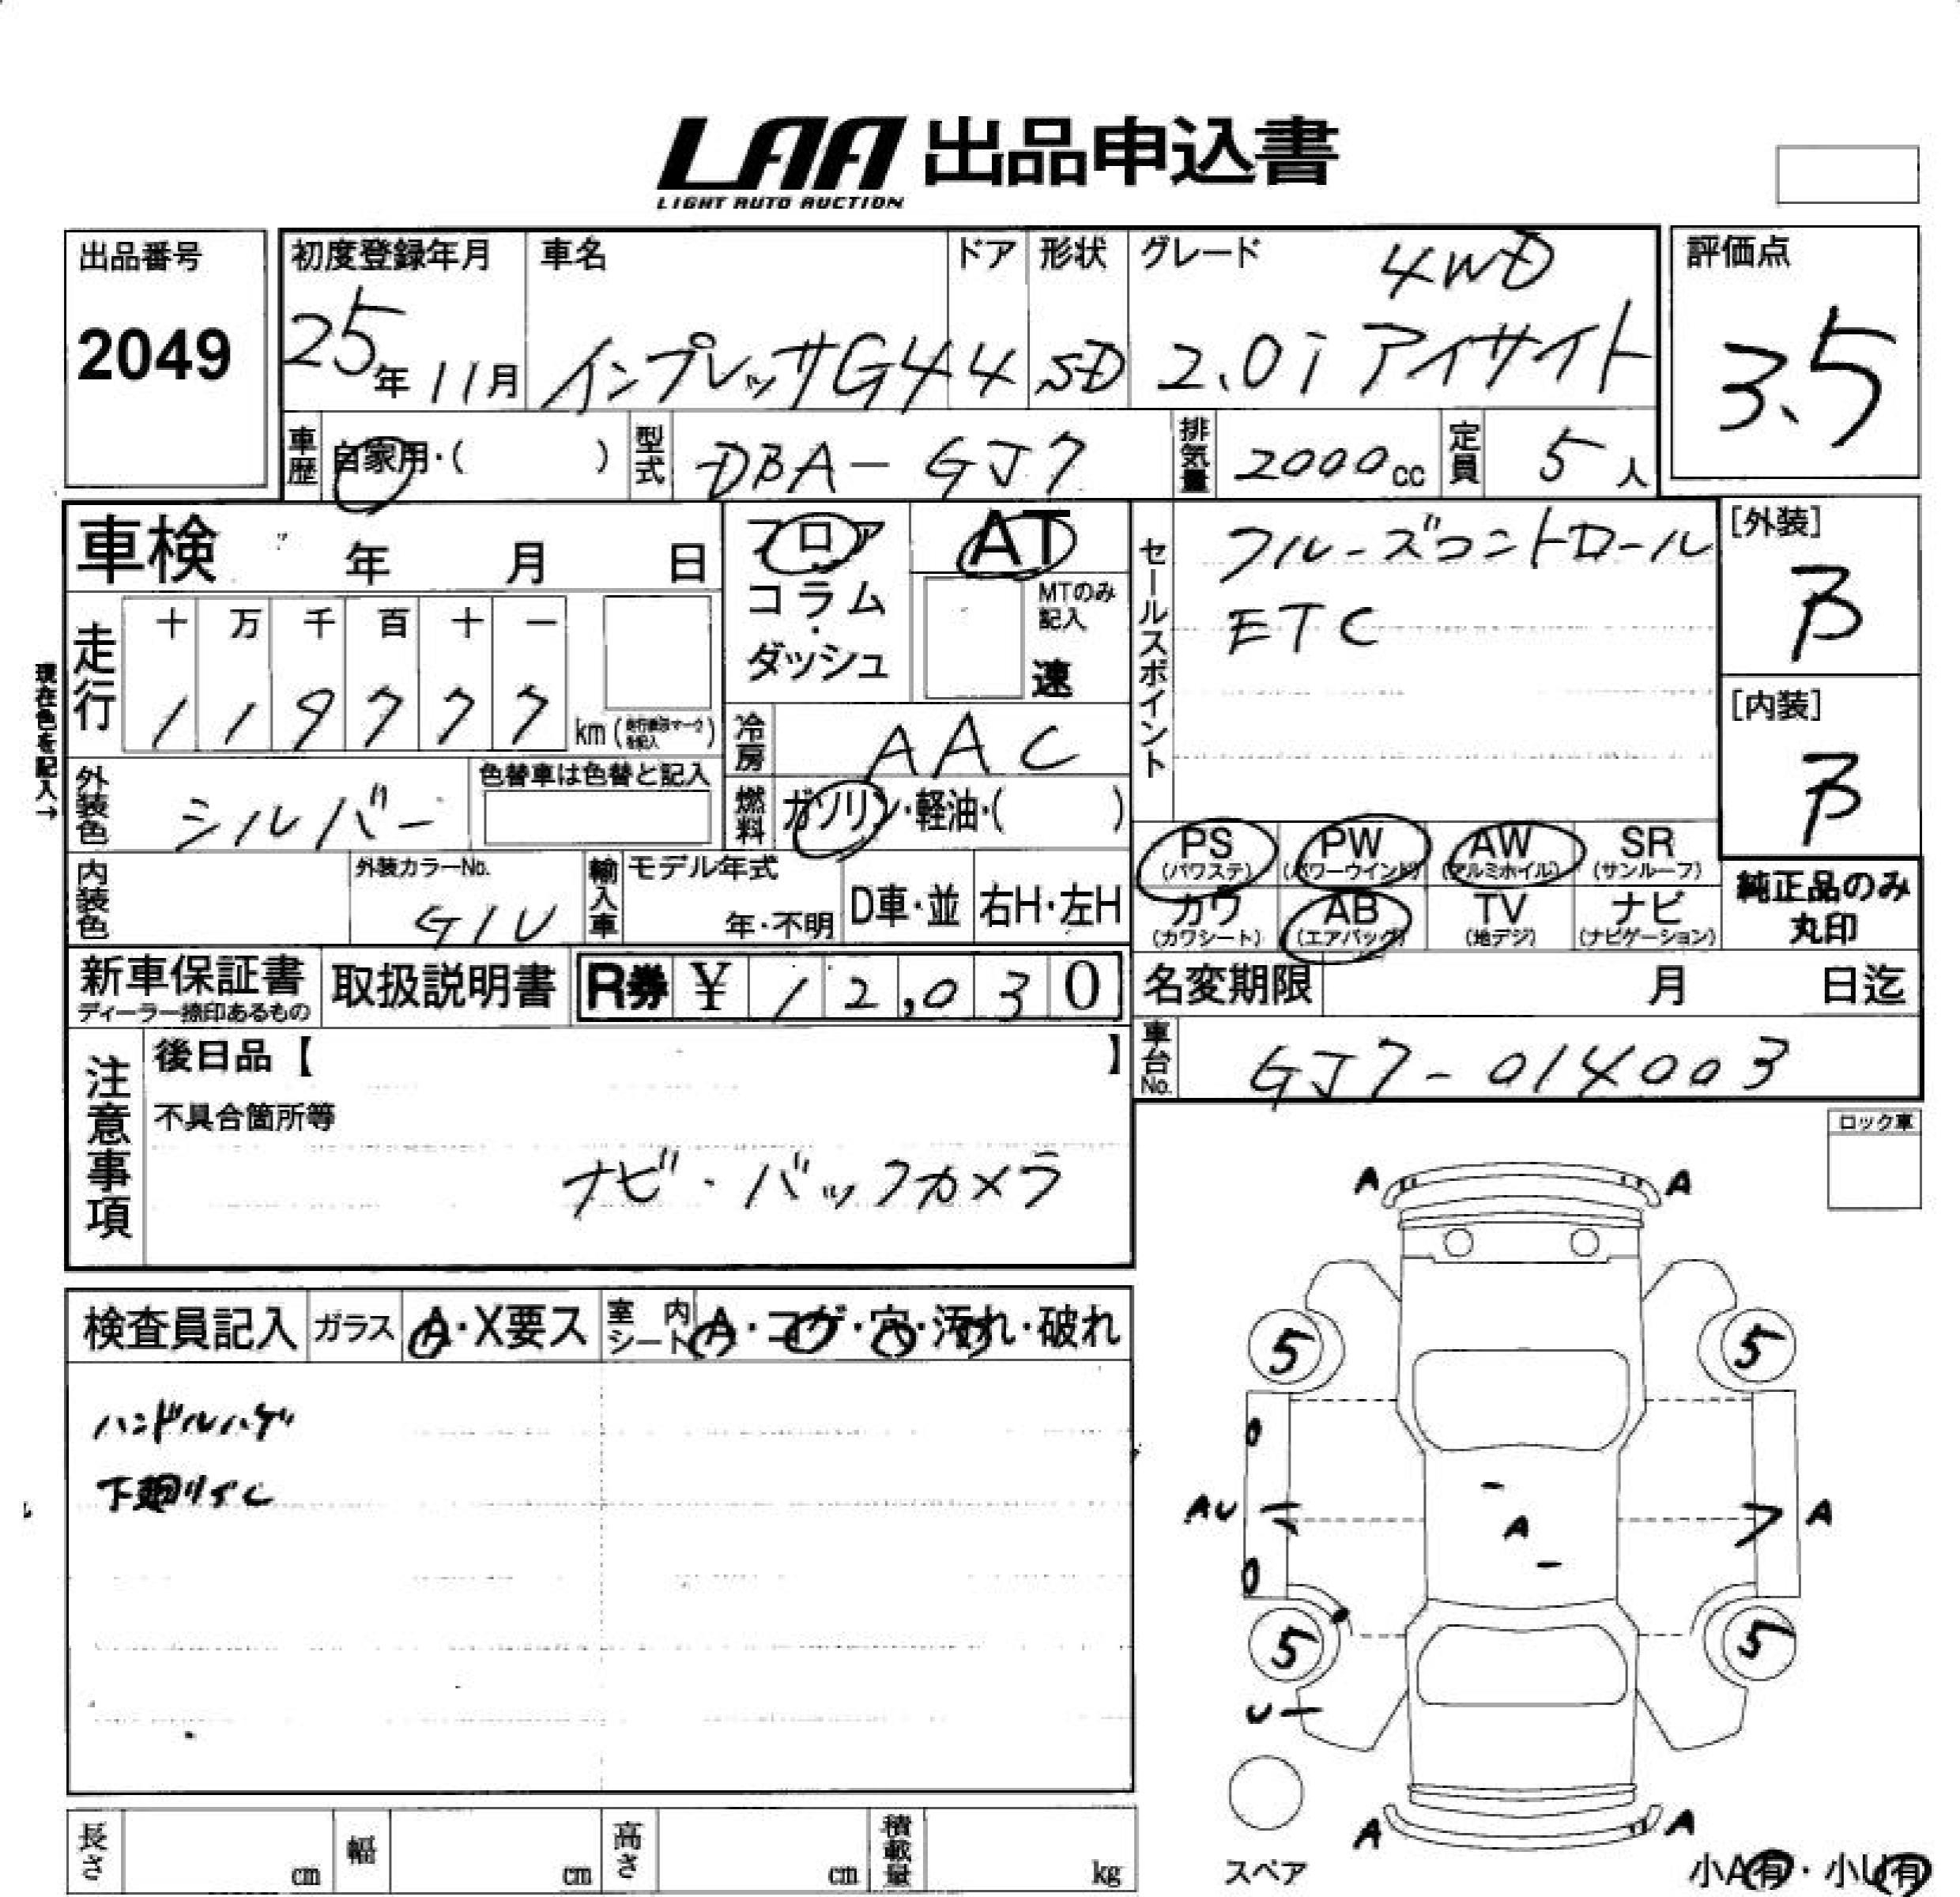 LAA 出品申込書
LIGHT AUTO AUCTION
出品番号
2049
初度登録年月
25年11月
車名
インプレッサG4
ドア
4
形状
SD
グレード
4WD
2.0i アイサイト
評価点
3.5
車歴
自家用・( )
型式
DBA-GJ7
排気量
2000cc
定員
5人
車検 年 月 日
フロア
コラム
・
ダッシュ
AT
MTのみ
記入
速
セールスポイント
クルーズコントロール
ETC
[外装]
B
[内装]
B
現在色を記入→
走行
十 万 千 百 十 一
1 1 9 7 7 7 km
冷房
AAC
外装色
シルバー
色替車は色替と記入
燃料
ガソリン・軽油・( )
PS
(パワステ)
PW
(パワーウインド)
AW
(アルミホイル)
SR
(サンルーフ)
カワ
(カワシート)
AB
(エアバッグ)
TV
(地デジ)
ナビ
(ナビゲーション)
純正品のみ
丸印
内装色
外装カラーNo.
G1U
輸入車
モデル年式
年・不明
D車・並
右H・左H
新車保証書
ディーラー捺印あるもの
取扱説明書
R券 ¥ 12,030
名変期限 月 日迄
車台No.
GJ7-014003
注意事項
後日品【 】
不具合箇所等
ナビ・バックカメラ
ロック車
検査員記入
ガラス
A・X要ス
室内
シート
A・コゲ・穴・汚れ・破れ
ハンドルハゲ
下廻りサビ
A A
5 5
AU A A
5 5
U
A A
スペア
小A有・小U有
長さ cm
幅 cm
高さ cm
積載量 kg